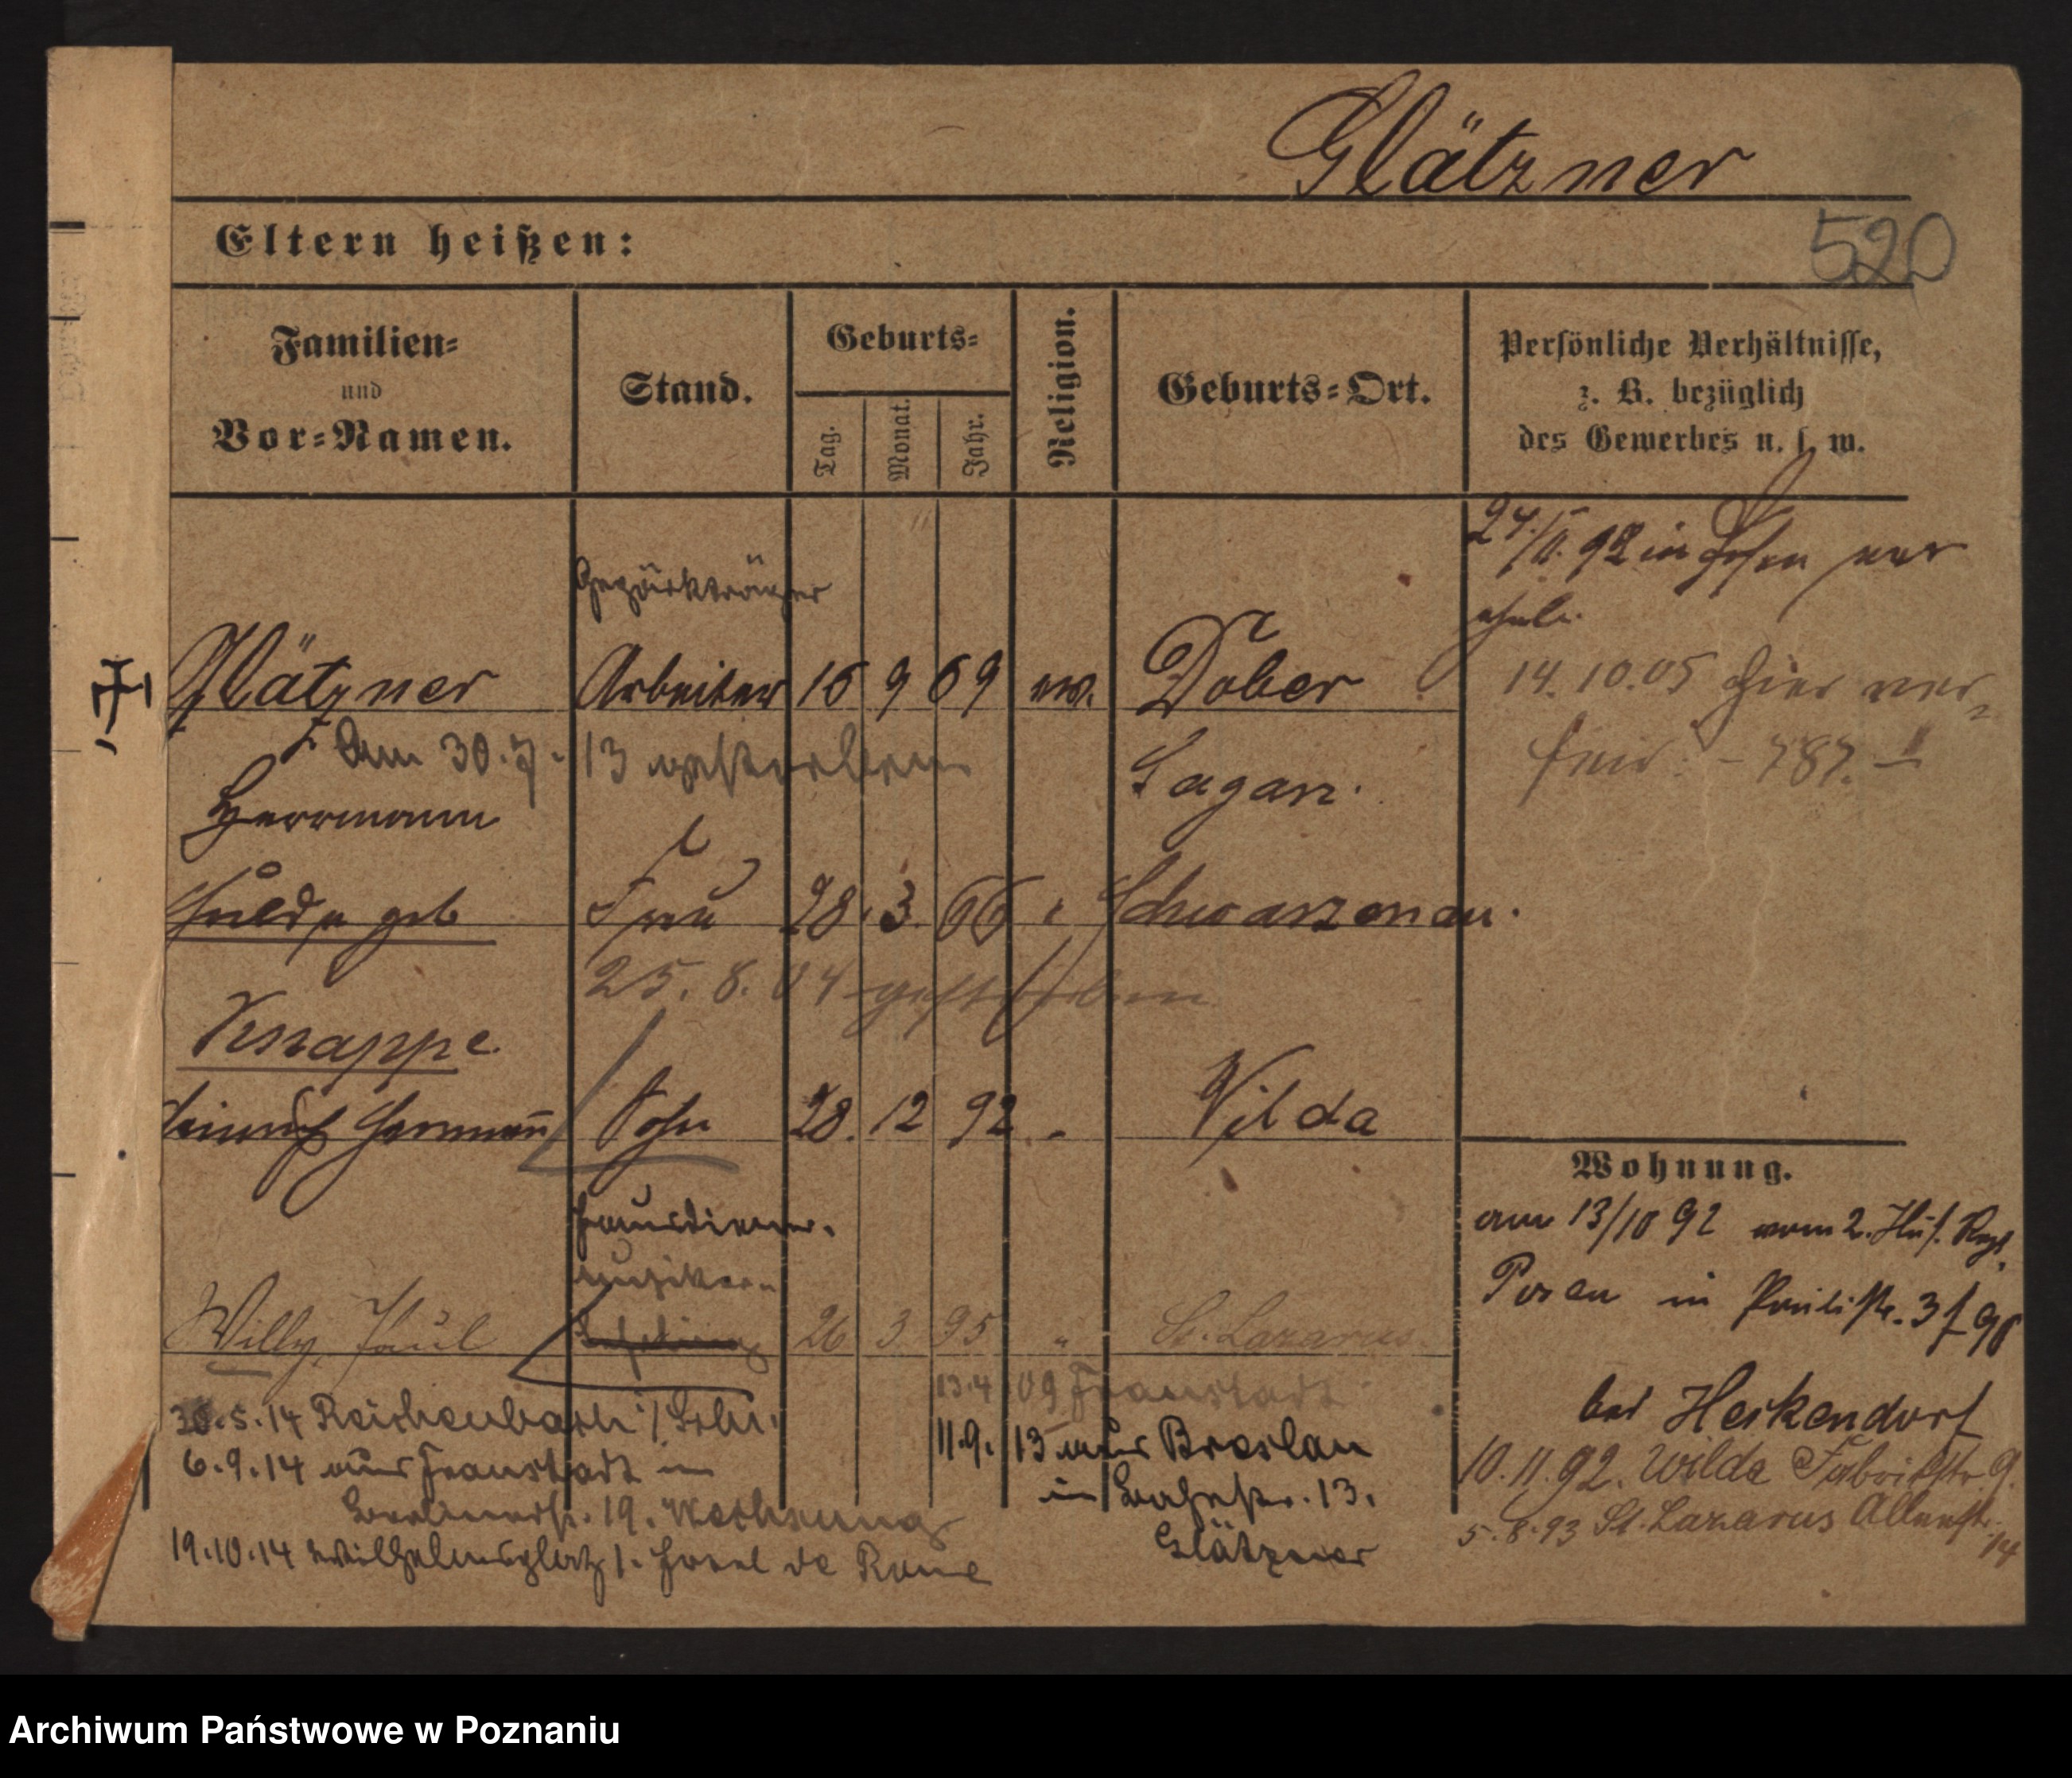 Glätzner
Eltern heißen:
520
Familien-
und
Vor-Namen.
Stand.
Geburts-
Tag.
Monat.
Jahr.
Religion.
Geburts-Ort.
Persönliche Verhältnisse,
z. B. bezüglich
des Gewerbes u. s. w.
92 in Posen ver
ehel.
14.10.05 hier ver-
heir. - 787.
Gepäckträger
Glätzner Arbeiter 16 9 69 ev. Dober
Am 30.7.13 gestorben
Sagan.
Herrmann
Hulda geb Frau 28. 3. 66 " Schwarzenau.
25. 8. 04 gestorben
Knappe
Heinrich Hermann Sohn 28. 12 92 " Wilda
Hausdiener.
Musiker
Willy, Paul Lehrling 26 3 95 " St. Lazarus
13.4.09 Fraustadt
30.5.14 Reichenbach /Schl.
11.9.13 aus Breslau
6.9.14 aus Fraustadt in
in Bahnstr. 13.
19.
Glätzner
19.10.14 Wilhelmsplatz 1. Hotel de Rome
Wohnung.
am 13/10 92 vom 2. Hus. Regt.
Posen in Paulistr. 3
bei Heikendorf
10.11.92. Wilda Fabrikstr. 9.
5.8.93 St. Lazarus
14
Archiwum Państwowe w Poznaniu